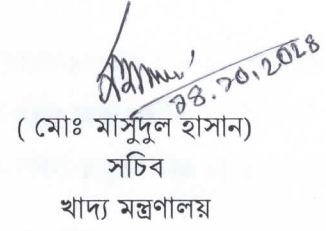 ২৪.১০.২০২৪
( মোঃ মাসুদুল হাসান)
সচিব
খাদ্য মন্ত্রণালয়